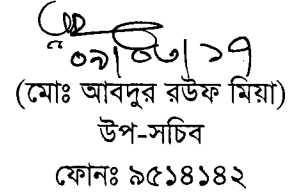 ০৯/০৮/১৭
(মোঃ আবদুর রউফ মিয়া)
উপ-সচিব
ফোনঃ ৯৫১৪১৪২